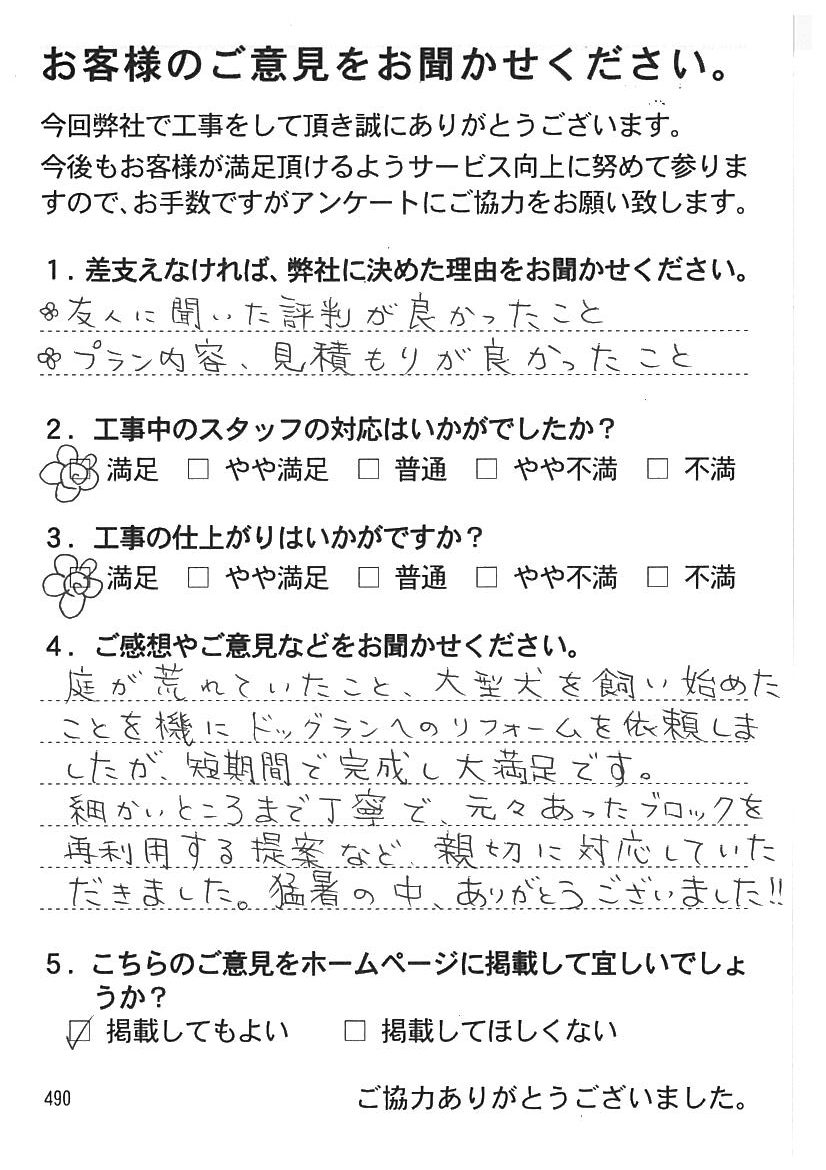 お客様のご意見をお聞かせください。
今回弊社で工事をして頂き誠にありがとうございます。
今後もお客様が満足頂けるようサービス向上に努めて参りま
すので、お手数ですがアンケートにご協力をお願い致します。
1. 差支えなければ、弊社に決めた理由をお聞かせください。
友人に聞いた評判が良かったこと
プラン内容、見積もりが良かったこと
2. 工事中のスタッフの対応はいかがでしたか?
満足 □ やや満足 □ 普通 □ やや不満 □ 不満
3. 工事の仕上がりはいかがですか?
満足 □ やや満足 □ 普通 □ やや不満 □ 不満
4. ご感想やご意見などをお聞かせください。
庭が荒れていたこと、大型犬を飼い始めた
ことを機にドッグランへのリフォームを依頼しま
したが、短期間で完成し大満足です。
細かいところまで丁寧で、元々あったブロックを
再利用する提案など、親切に対応していた
だきました。猛暑の中、ありがとうございました!!
5. こちらのご意見をホームページに掲載して宜しいでしょ
うか?
☑ 掲載してもよい □ 掲載してほしくない
490 ご協力ありがとうございました。